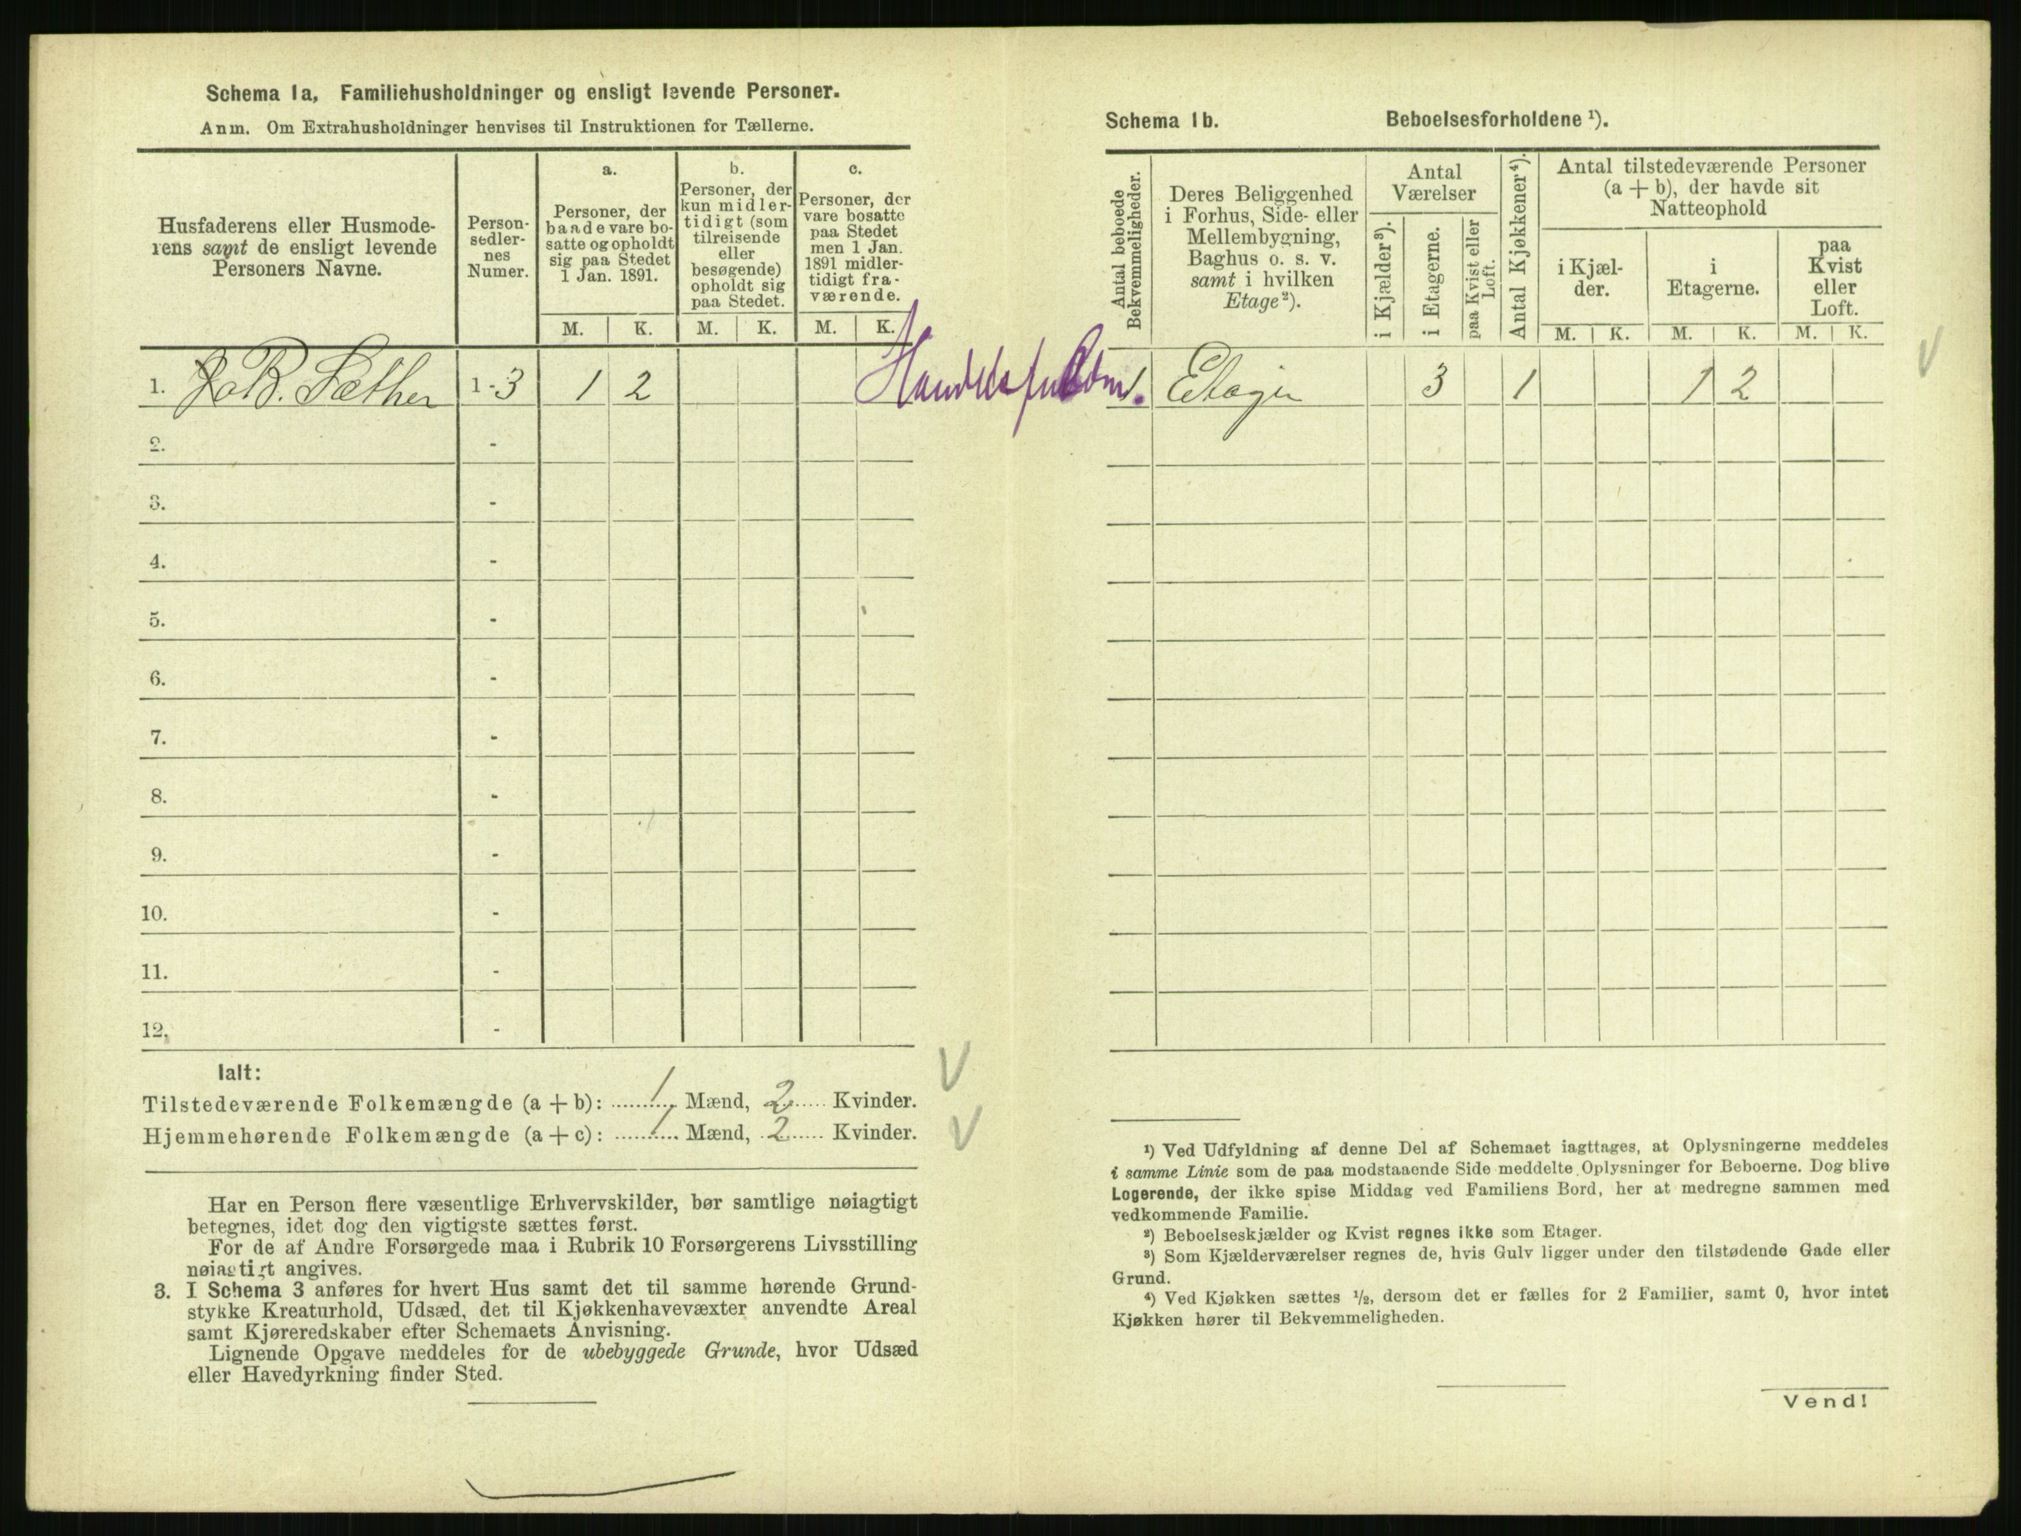 Schema 1a, Familiehusholdninger og ensligt levende Personer.
Anm. Om Extrahusholdninger henvises til Instruktionen for Tællerne.
Husfaderens eller Husmode-
rens samt de ensligt levende
Personers Navne.
Person-
sedler-
nes
Numer.
a.
Personer, der
baade vare bo-
satte og opholdt
sig paa Stedet
1 Jan. 1891.
b.
Personer, der
kun midler-
tidigt (som
tilreisende
eller
besøgende)
opholdt sig
paa Stedet.
c.
Personer, der
vare bosatte
paa Stedet
men 1 Jan.
1891 midler-
tidigt fra-
værende.
M. K. M. K. M. K.
1. B. Sæther 1 - 3 1 2
2. -
3. -
4. -
5. -
6. -
7. -
8. -
9. -
10. -
11. -
12. -
Ialt:
Tilstedeværende Folkemængde (a + b): 1 Mænd, 2 Kvinder.
Hjemmehørende Folkemængde (a + c): 1 Mænd, 2 Kvinder.
Har en Person flere væsentlige Erhvervskilder, bør samtlige nøiagtigt
betegnes, idet dog den vigtigste sættes først.
For de af Andre Forsørgede maa i Rubrik 10 Forsørgerens Livsstilling
nøiagtigt angives.
3. I Schema 3 anføres for hvert Hus samt det til samme hørende Grund-
stykke Kreaturhold, Udsæd, det til Kjøkkenhavevæxter anvendte Areal
samt Kjøreredskaber efter Schemaets Anvisning.
Lignende Opgave meddeles for de ubebyggede Grunde, hvor Udsæd
eller Havedyrkning finder Sted.
Schema 1b. Beboelsesforholdene ¹).
Antal beboede
Bekvemmeligheder.
Deres Beliggenhed
i Forhus, Side- eller
Mellembygning,
Baghus o. s. v.
samt i hvilken
Etage ²).
Antal
Værelser
i Kjælder ³).
i Etagerne.
paa Kvist eller
Loft.
Antal Kjøkkener ⁴).
Antal tilstedeværende Personer
(a + b), der havde sit
Natteophold
i Kjæl-
der.
i
Etagerne.
paa
Kvist
eller
Loft.
M. K. M. K. M. K.
1. 3 1 1 2
¹) Ved Udfyldning af denne Del af Schemaet iagttages, at Oplysningerne meddeles
i samme Linie som de paa modstaaende Side meddelte Oplysninger for Beboerne. Dog blive
Logerende, der ikke spise Middag ved Familiens Bord, her at medregne sammen med
vedkommende Familie.
²) Beboelseskjælder og Kvist regnes ikke som Etager.
³) Som Kjælderværelser regnes de, hvis Gulv ligger under den tilstødende Gade eller
Grund.
⁴) Ved Kjøkken sættes ½, dersom det er fælles for 2 Familier, samt 0, hvor intet
Kjøkken hører til Bekvemmeligheden.
Vend!